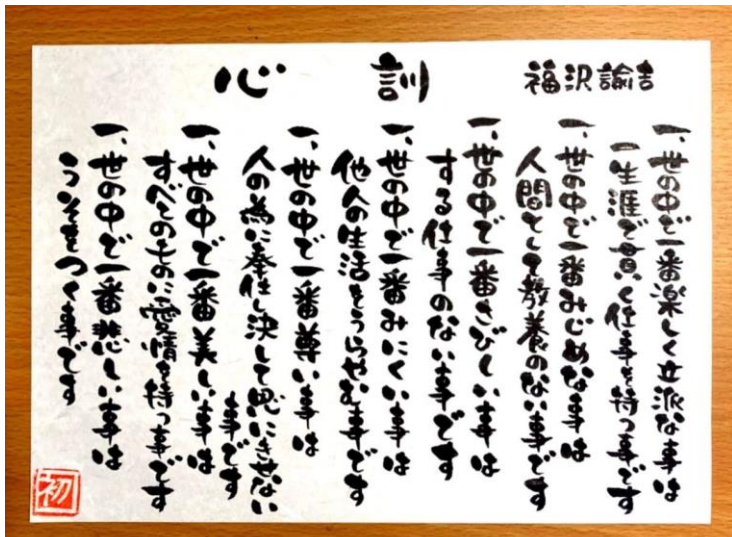 心訓
福沢諭吉
一、世の中で一番楽しく立派な事は
一生涯で貫く仕事を持つ事です
一、世の中で一番みじめな事は
人間として教養のない事です
一、世の中で一番さびしい事は
する仕事のない事です
一、世の中で一番みにくい事は
他人の生活をうらやむ事です
一、世の中で一番尊い事は
人の為に奉仕し決して恩にきせない
事です
一、世の中で一番美しい事は
すべてのものに愛情を持つ事です
一、世の中で一番悲しい事は
うそをつく事です
初